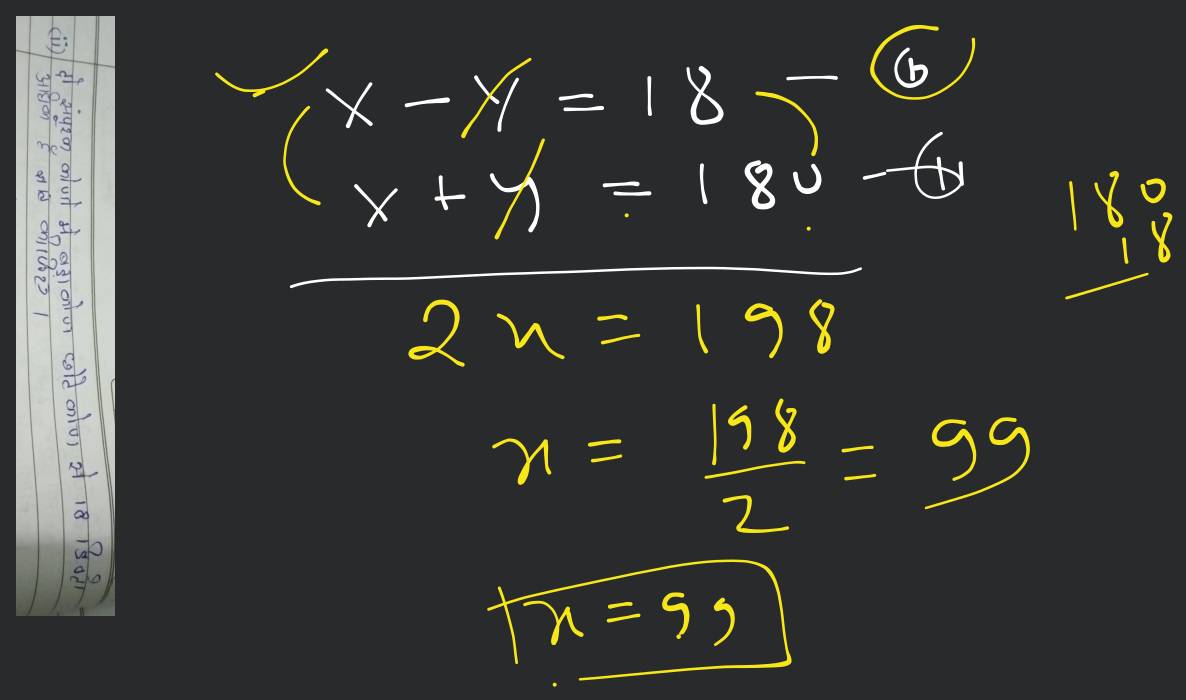 (ii) दो संपूरक कोणों में बड़ा कोण छोटे कोण से 18 डिग्री
अधिक है ज्ञात कीजिए।
x - y = 18 — (b)
x + y = 180 —
180
18
2x = 198
x = 198/2 = 99
x = 99